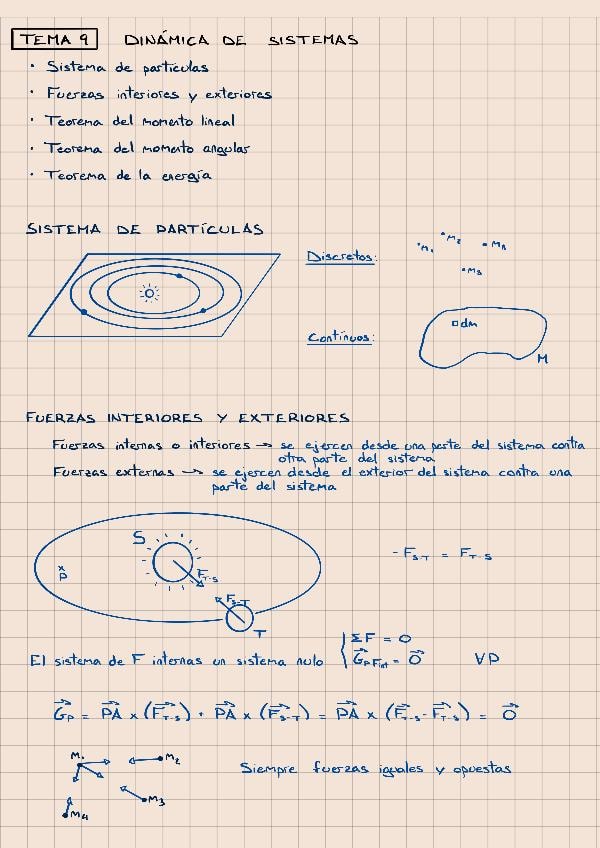 TEMA 9 DINÁMICA DE SISTEMAS
· Sistema de partículas
· Fuerzas interiores y exteriores
· Teorema del momento lineal
· Teorema del momento angular
· Teorema de la energía
SISTEMA DE PARTÍCULAS
Discretos: M₁ M₂ M₃
Contínuos: dm M
FUERZAS INTERIORES Y EXTERIORES
Fuerzas internas o interiores → se ejercen desde una parte del sistema contra
otra parte del sistema
Fuerzas externas → se ejercen desde el exterior del sistema contra una
parte del sistema
S
P
F_T-S
F_S-T
T
- F_S-T = F_T-S
ΣF = 0
El sistema de F internas un sistema nulo G⃗_P F_int = 0⃗ ∀P
G⃗_P = PA⃗ x (F⃗_T-S) + PA⃗ x (F⃗_S-T) = PA⃗ x (F⃗_T-S - F⃗_T-S) = 0⃗
M₁ M₂
Siempre fuerzas iguales y opuestas
M₃
M₄